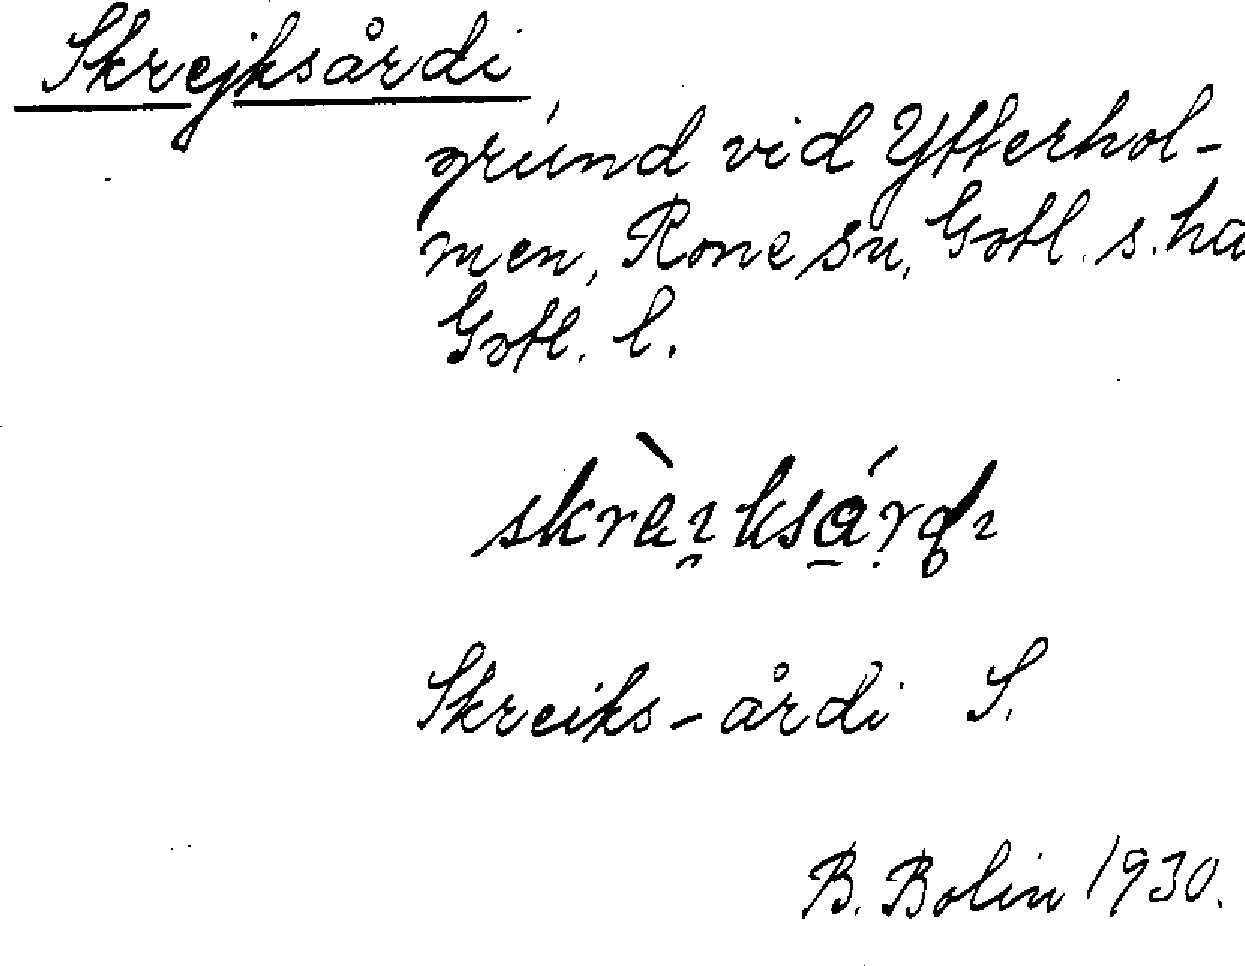 Skrejksårdi
grund vid Ytterhol-
men, Rone sn, Gotl. s. hd
Gotl. l.
Skreiks-årdi S.
B. Bolin 1930.